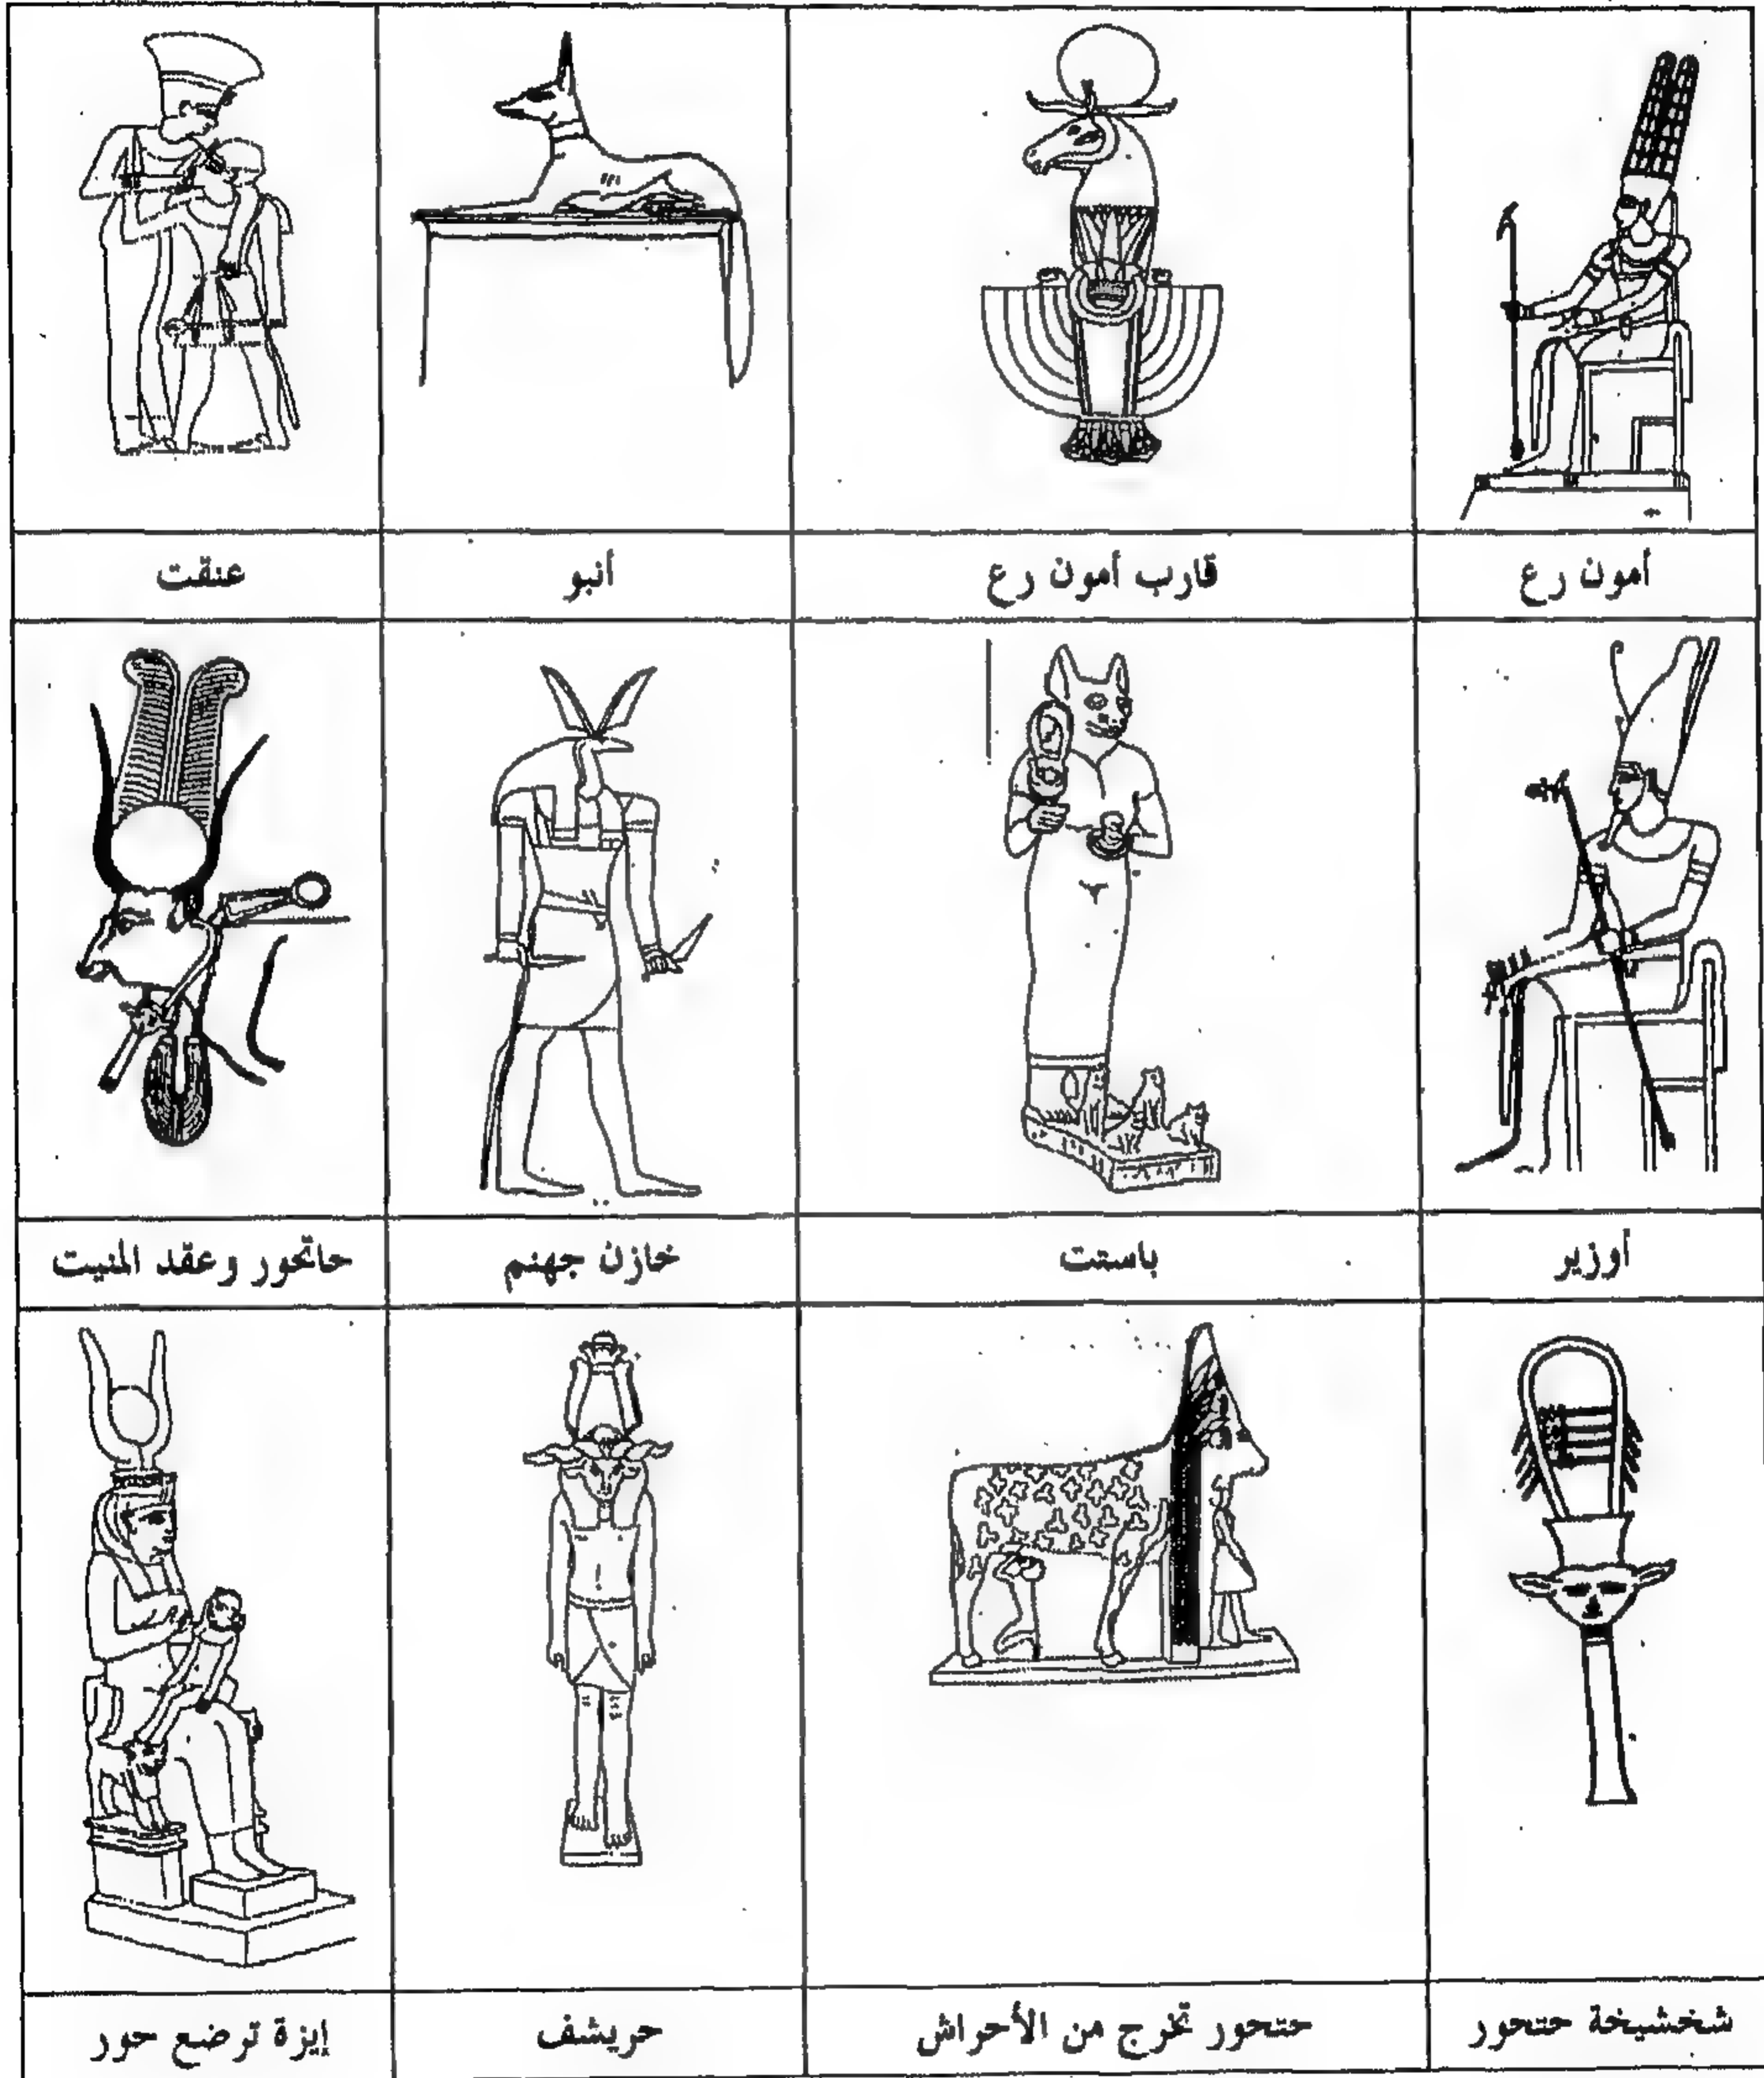 أمون رع	قارب أمون رع	أنبو	عنقت
أوزير	باستت	خازن جهنم	حاتحور وعقد المنيت
شخشيخة حتحور	حتحور تخرج من الأحراش	حريشف	إيزة ترضع حور